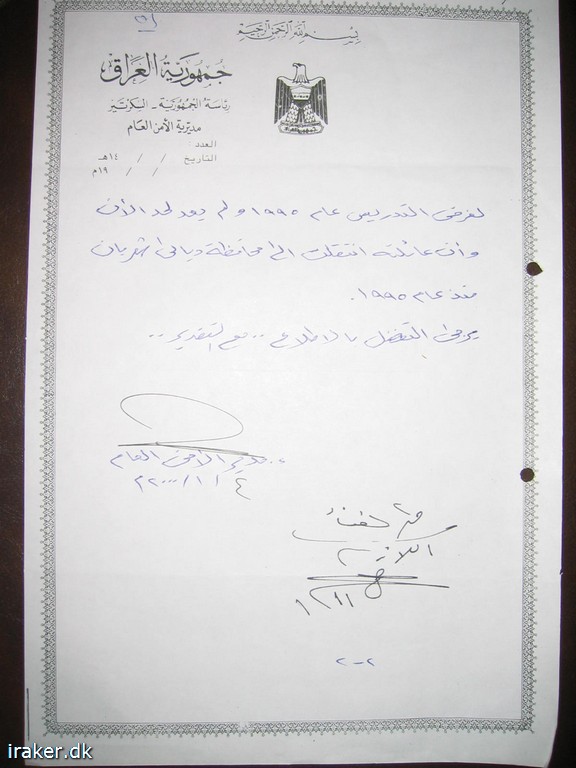 بسم الله الرحمن الرحيم
جمهورية العراق
رئاسة الجمهورية - السكرتير
مديرية الأمن العام
العدد :
التاريخ / / ١٤هـ
/ / ١٩م
لغرض التدريس عام ١٩٩٥ ولم يعد لحد الآن
وأن عائلته انتقلت الى محافظة ديالى شهربان
منذ عام ١٩٩٥.
يرجى التفضل بالاطلاع .. مع التقدير ..
مدير الأمن العام
٤ / ١ / ٢٠٠٠م
٢-٢
iraker.dk